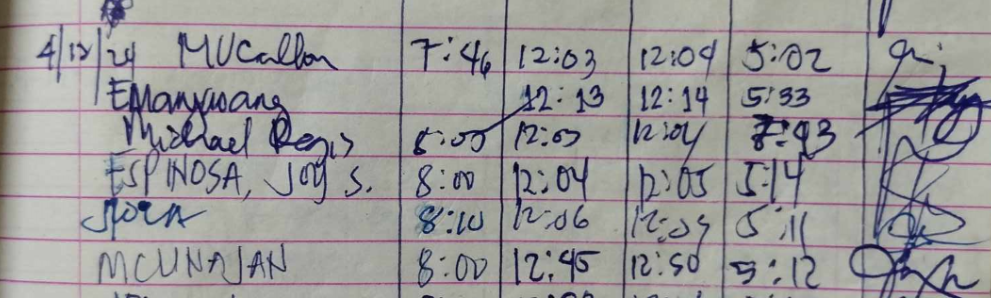 4/12/24 MUCallon 7:46 12:03 12:04 5:02
12:13 12:14 5:33
Michael Regis 8:00 12:03 12:04
ESPINOSA, JOY S. 8:00 12:04 12:05 5:14
8:10 12:06 5:11
MCUNAJAN 8:00 12:45 12:50 5:12